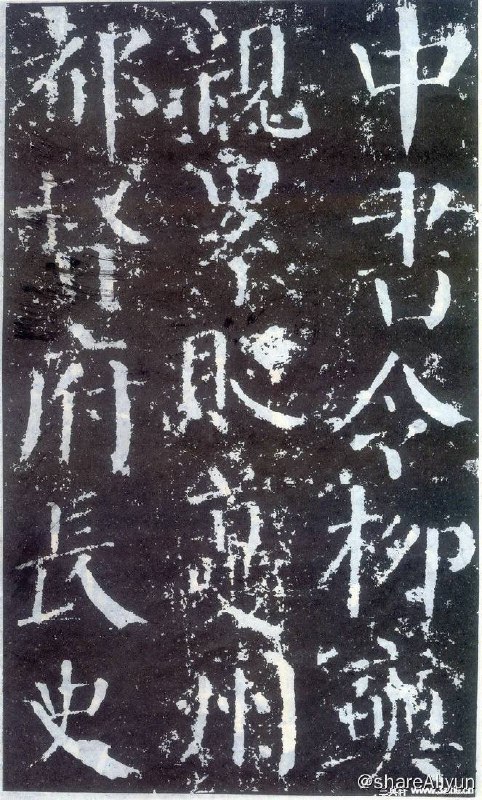 中書令柳奭
親累貶夔州
都督府長史
@shareAliyun